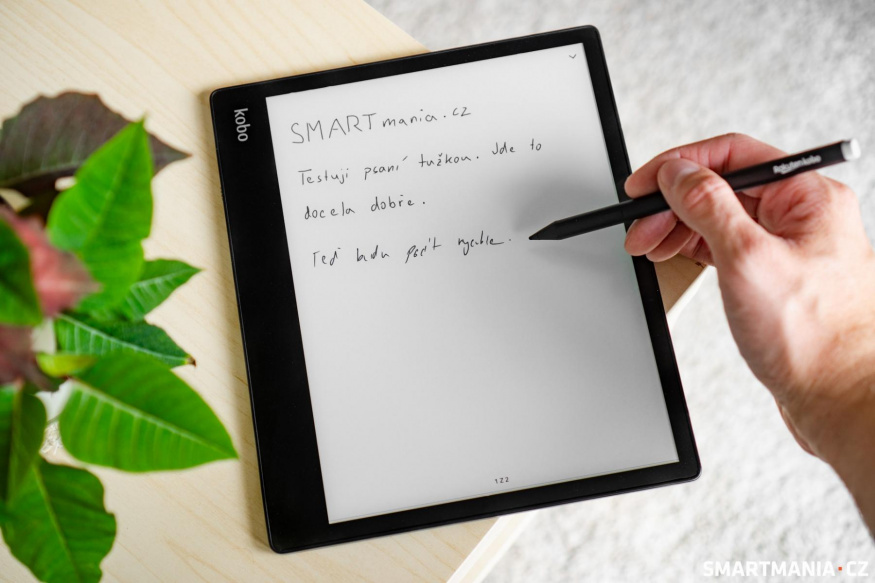 kobo
SMARTmania.cz
Testuji psaní tužkou. Jde to
docela dobře.
Teď budu psát rychle.
Rakuten kobo
122
SMARTMANIA.CZ